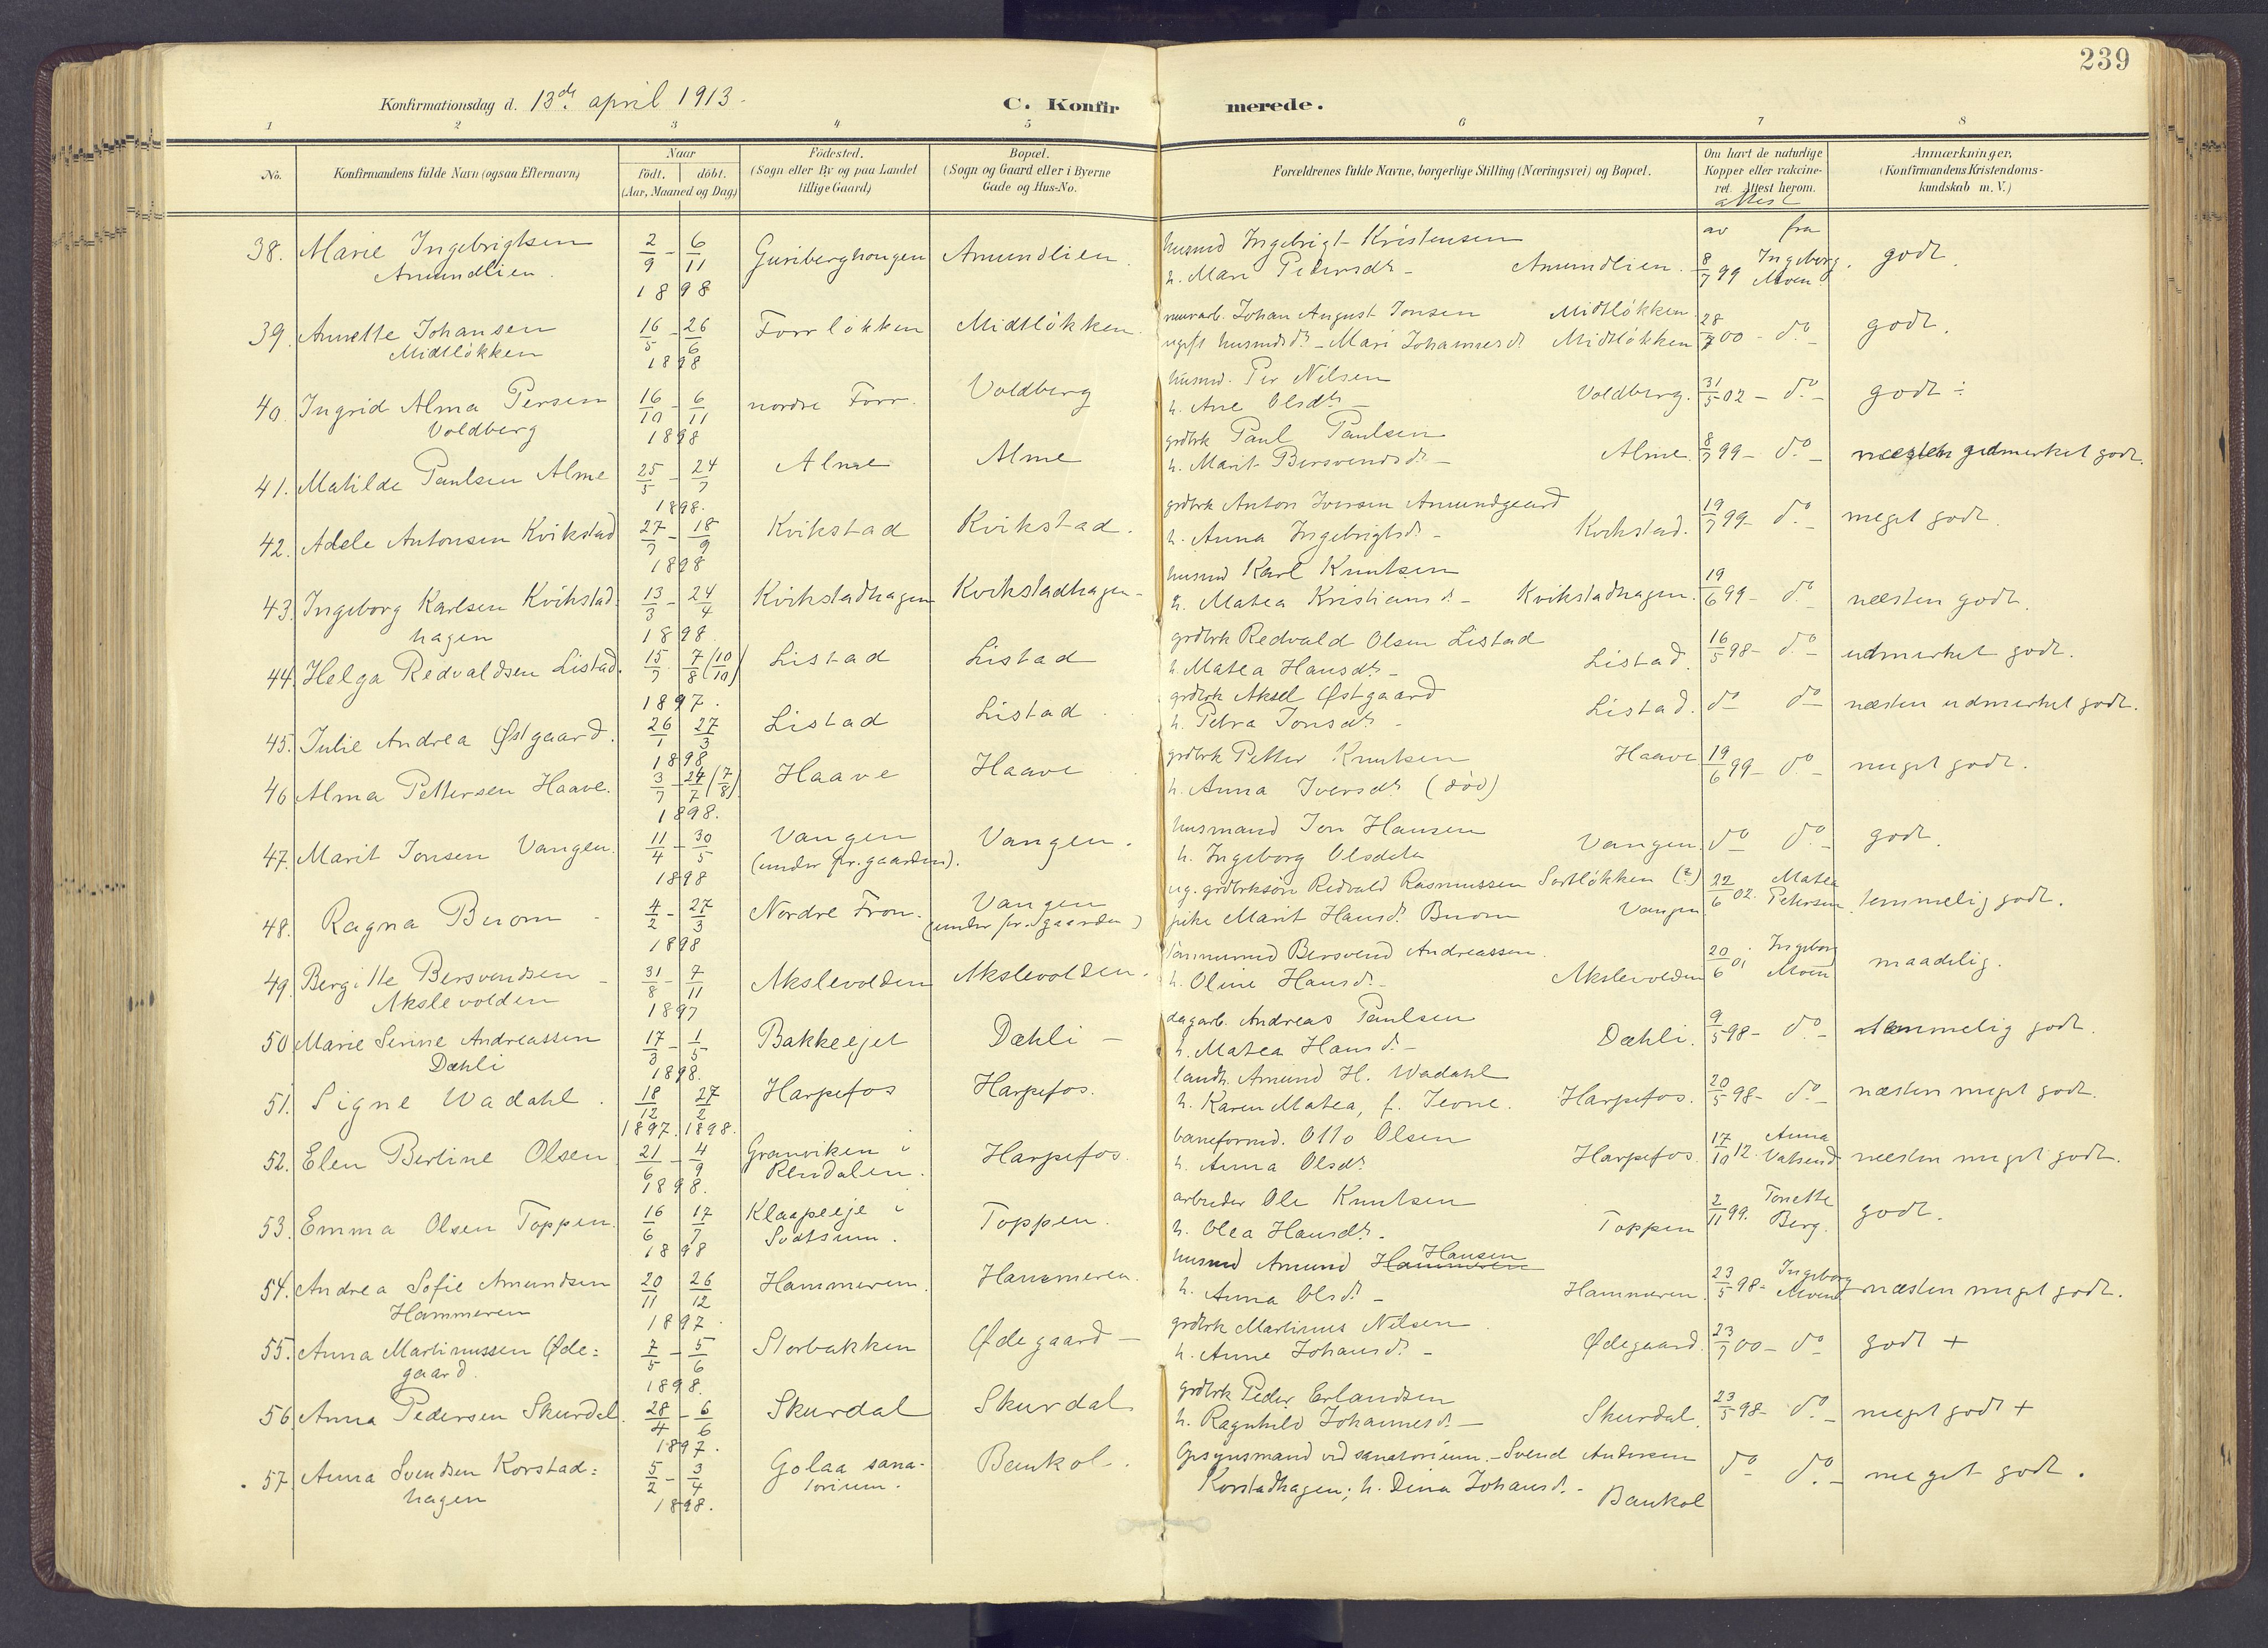 239
Konfirmationsdag d. 13de april 1913.
C. Konfir merede.
1 2 3 4 5 6 7 8
No. Konfirmandens fulde Navn (ogsaa Efternavn) Naar födt. döbt. (Aar, Maaned og Dag) Födested. (Sogn eller By og paa Landet tillige Gaard) Bopæl. (Sogn og Gaard eller i Byerne Gade og Hus-No. Forældrenes fulde Navne, borgerlige Stilling (Næringsvei) og Bopæl. Om havt de naturlige Kopper eller vakcineret. Attest herom. Anmærkninger. (Konfirmandens Kristendomskundskab m. V.)
attest
av fra
38. Marie Ingebrigtsen 2/9 - 6/11 Guriberghougen Amundlien. husmd Ingebrigt Kristensen
Amundlien. 1898 h. Mari Pedersdt. - Amundlien. 8/7 99 Ingeborg Moen. godt.
39. Annette Johansen 16/5 - 26/6 Forrløkken Midtløkken. murarb. Johan August Jonsen Midtløkken.
Midtløkken 1898 ugift husmdsdt. - Mari Johannesdt. Midtløkken 28/7 00 - do - godt.
40. Ingrid Alma Persen 16/10 - 6/11 nordre Forr. Voldberg husmd. Per Nilsen
Voldberg 1898 h. Ane Olsdt. - Voldberg. 31/5 02 - do - godt ÷
41. Matilde Paulsen Alme 25/5 - 24/7 Alme Alme grdbrk Paul Paulsen
1898. h. Marit Bersvendsdt. - Alme. 8/7 99 - do - næsten udmerket godt.
42. Adele Antonsen Kvikstad 27/7 - 18/9 Kvikstad Kvikstad. grdbrk Anton Iversen Amundgaard
1898 h. Anna Ingebrigtsdt. - Kvikstad. 19/7 99 - do - meget godt.
43. Ingeborg Karlsen Kvikstad- 13/3 - 24/4 Kvikstadhagen Kvikstadhagen - husmd Karl Knutsen
hagen 1898. h. Matea Kristiansdt. - Kvikstadhagen. 19/6 99 - do - næsten godt.
44. Helga Redvaldsen Listad. 15/7 - 7/8 (10/10) Listad Listad grdbrk Redvald Olsen Listad
1897. h. Matea Hansdt. - Listad. 16/5 98 - do - udmerket godt.
45. Julie Andrea Østgaard. 26/1 27/3 Listad Listad. grdbrk Aksel Østgaard
1898 h. Petra Jonsdt. - Listad. do do - næsten udmerket godt.
46 Alma Pettersen Haave. 3/7 - 24/7 (7/8) Haave Haave grdbrk Petter Knutsen Haave
1898. h. Anna Iversdt. (død) 19/6 99 - do - meget godt.
47. Marit Jonsen Vangen. 11/4 - 30/5 Vangen Vangen. husmand Jon Hansen
1898 (under pr.gaarden). h. Ingeborg Olsdatter Vangen. do do - godt.
48. Ragna Buom - 4/2 - 27/3 Nordre Fron. Vangen ug. grdbrksøn Redvald Rasmussen Sortløkken (?)
1898 (under pr.gaarden) pike Marit Hansdt. Buom Vangen 22/6 02. Matea Petersen. temmelig godt.
49. Bergitte Bersvendsen - 31/8 - 7/11 Akslevolden Akslevolden. Bersvend Andreassen.
Akslevolden 1897 h. Oline Hansdt. - Akslevolden 20/6 01 Ingeborg Moen maadelig.
50 Marie Serine Andreassen 17/3 - 1/5 Bakkeejet Dæhli - dagarb. Andreas Paulsen
Dæhli 1898. h. Matea Hansdt. - Dæhli. 9/5 98 - do - temmelig godt.
51. Signe Wadahl. 18/12 27/2 Harpefos Harpefos. landh. Amund H. Wadahl
1897. 1898. h. Karen Matea, f. Jevne. Harpefos. 20/5 98 - do - næsten meget godt.
52. Elen Berline Olsen 21/6 - 4/9 Granviken i Rendalen. Harpefos. baneformd. Otto Olsen
1898. h. Anna Olsdt. Harpefos. 17/10 12. Anna Vatsend næsten meget godt.
53. Emma Olsen Toppen. 16/6 17/7 Klaapeeje i Sødtsum. Toppen. arbeider Ole Knutsen
1898 h. Olea Hansdt. Toppen 2/11 99. Tonette Berg. godt.
54. Andrea Sofie Amundsen 20/11 26/12 Hammeren. Hammeren. husmd Amund Hammeren Hansen
Hammeren 1897. h. Anna Olsdt. - Hammeren. 23/5 98 - Ingeborg Moen næsten meget godt.
55. Anna Martinussen Øde= 7/5 - 5/6 Storbakken Ødegaard - grdbrk Martinus Nilsen
gaard. 1898. h. Anne Johansdt. - Ødegaard. 23/7 00 - do - godt +
56 Anna Pedersen Skurdal. 28/4 - 6/6 Skurdal Skurdal grdbrk Peder Erlandsen
1897. h. Ragnhild Johannesdt. - Skurdal. 23/5 98 - do - meget godt +
57. Anna Svendsen Korstad= 5/2 - 3/4 Golaa sana- Baukol. Opsynsmand ved sanatorium. - Svend Andersen
hagen 1898. torium. Korstadhagen; h. Dina Johansdt. - Baukol do do - meget godt.